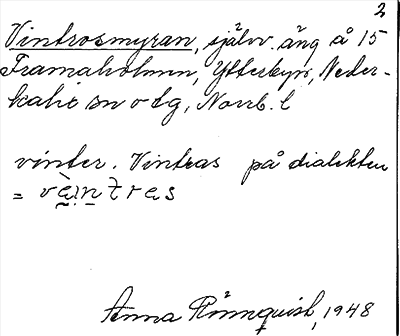 2
Vintrosmyran, självv. äng å 15
Framaholmen, Ytterbyn, Neder-
kalix sn o tg, Norrb. l
vinter. Vintras på dialekten
= vèintras
Anna Rönnquist, 1948